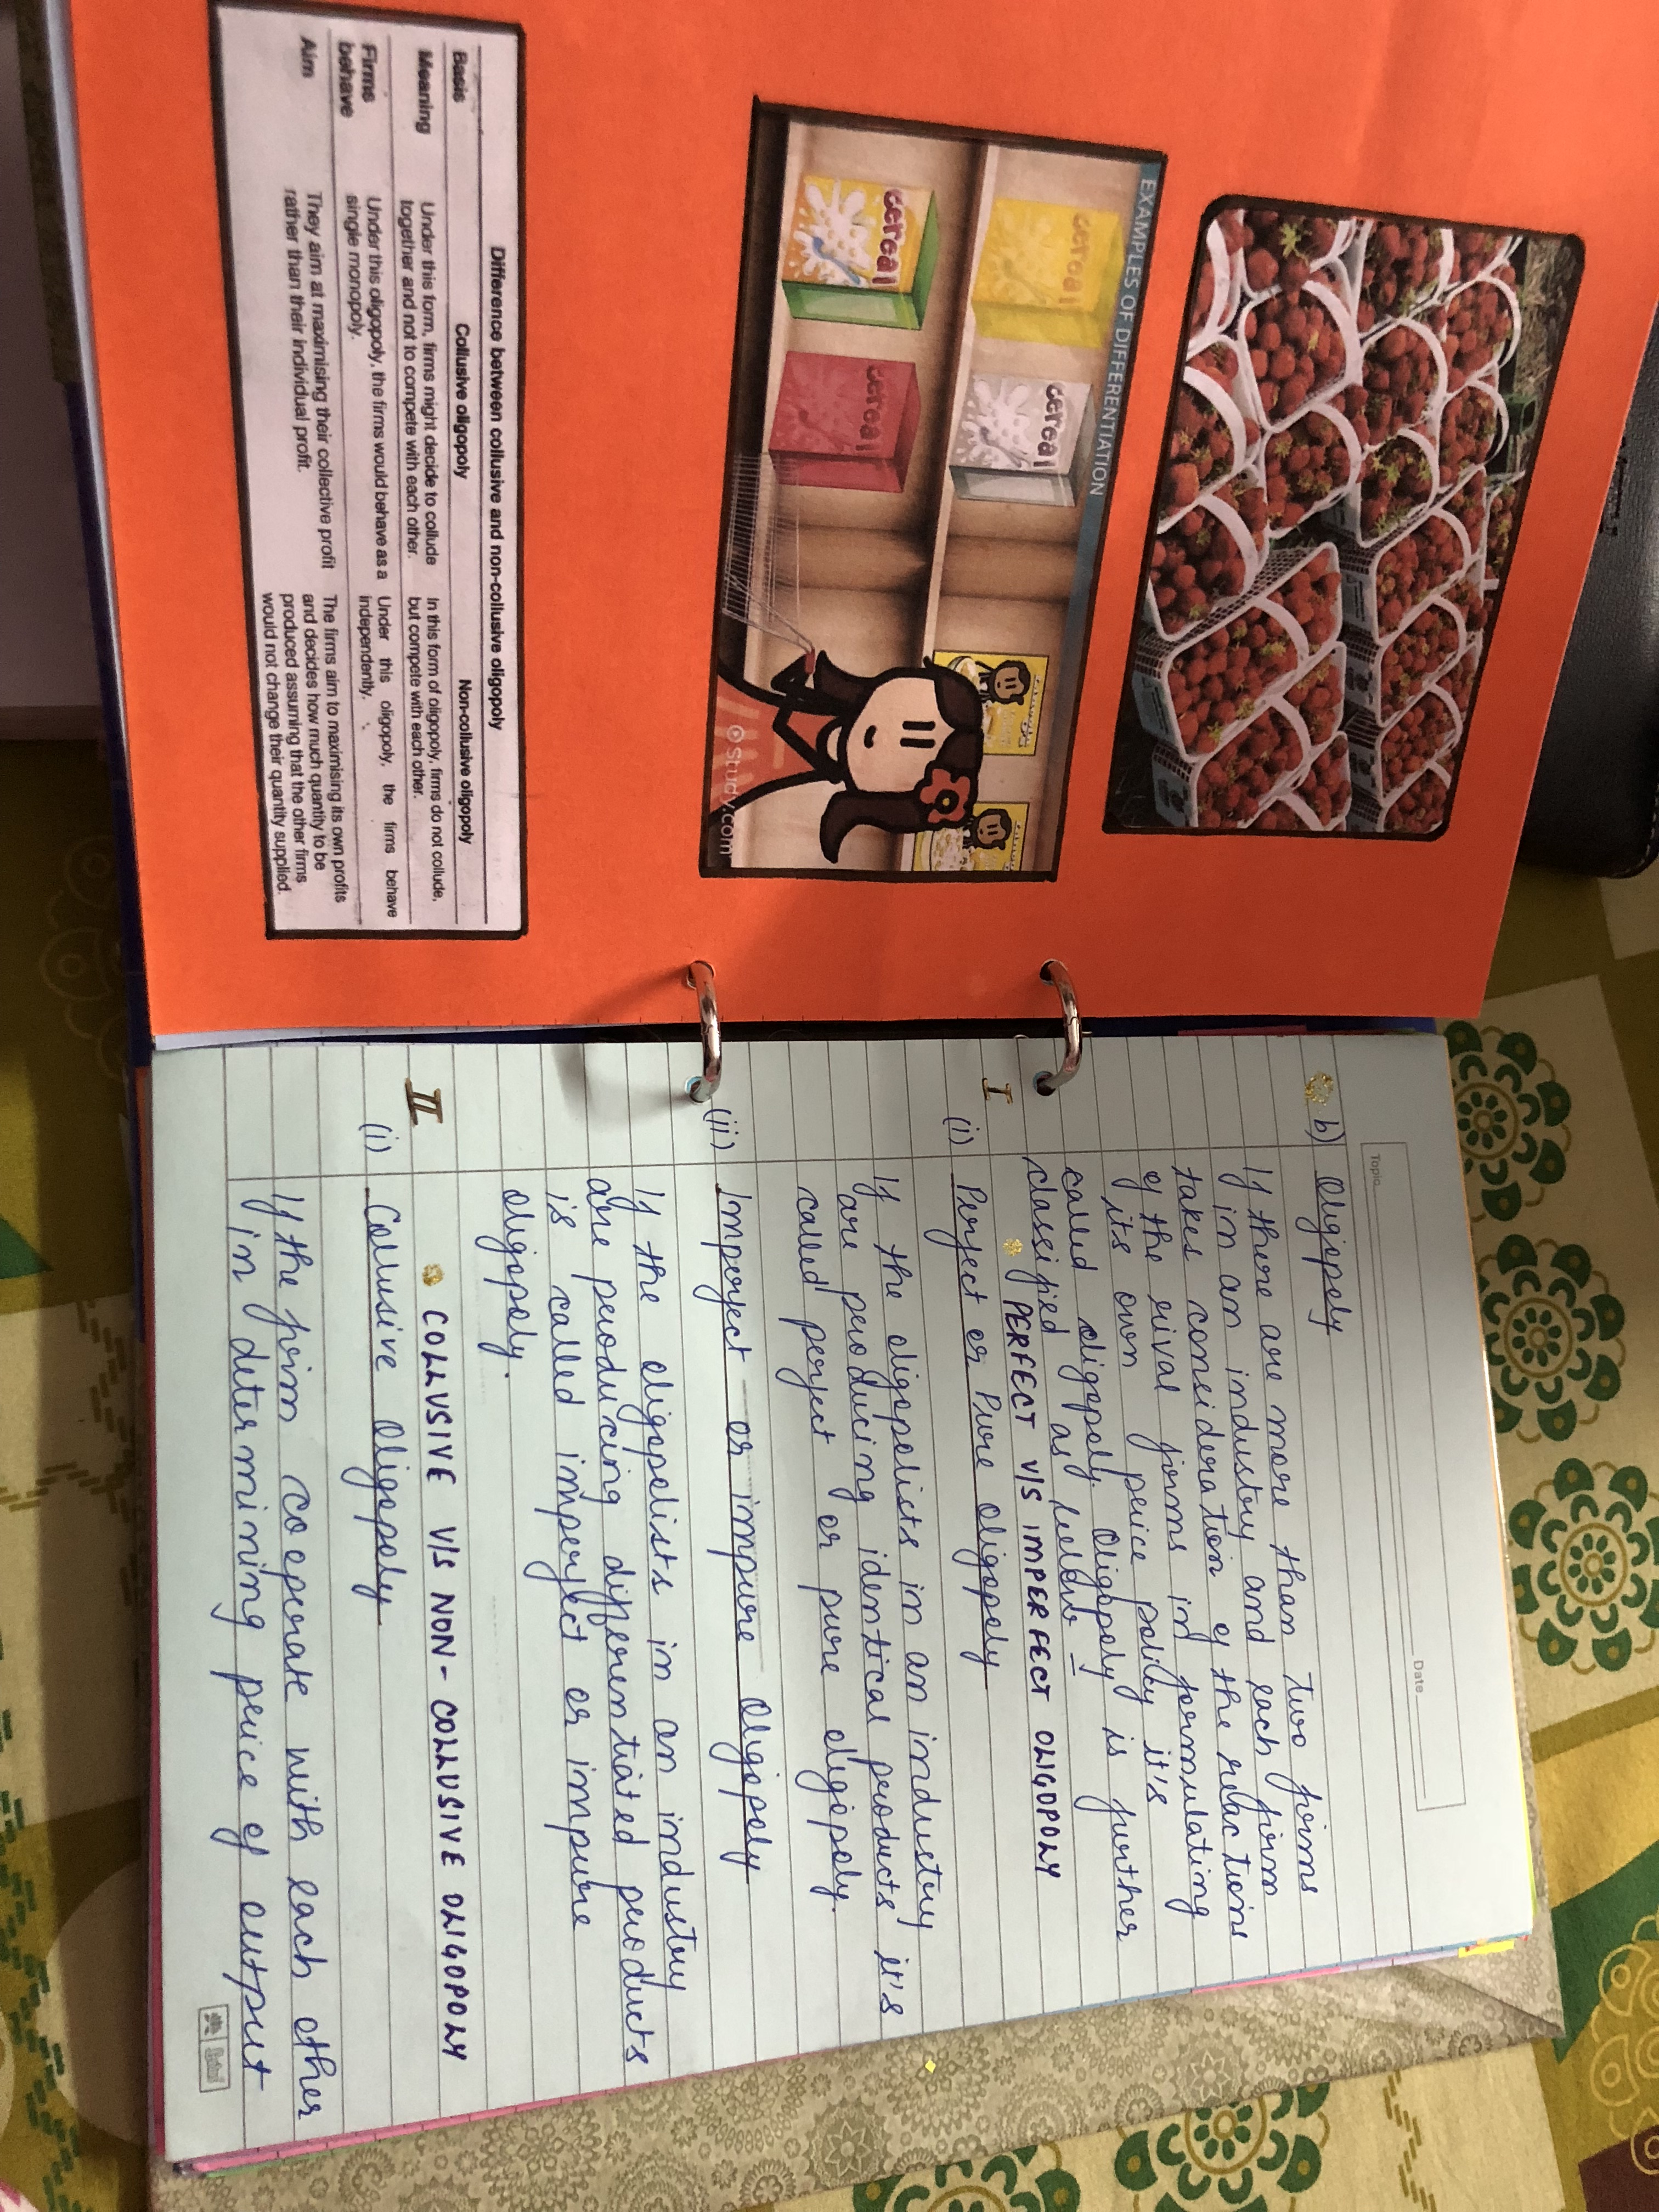 EXAMPLES OF DIFFERENTIATION
cereal
cereal
cereal
cereal
© Study.com
Difference between collusive and non-collusive oligopoly
Basis Collusive oligopoly Non-collusive oligopoly
Meaning Under this form, firms might decide to collude In this form of oligopoly, firms do not collude,
together and not to compete with each other. but compete with each other.
Firms Under this oligopoly, the firms would behave as a Under this oligopoly, the firms behave
behave single monopoly. independently.
Aim They aim at maximising their collective profit The firms aim to maximising its own profits
rather than their individual profit. and decides how much quantity to be
produced assuming that the other firms
would not change their quantity supplied.
Topic Date
b) Oligopoly
If there are more than two firms
in an industry and each firm
takes consideration of the reactions
of the rival firms in formulating
its own price policy it's
called oligopoly. Oligopoly is further
classified as below -
I PERFECT V/S IMPERFECT OLIGOPOLY
(i) Perfect or Pure Oligopoly
If the oligopolists in an industry
are producing identical products it's
called perfect or pure oligopoly.
(ii) Imperfect or impure Oligopoly
If the oligopolists in an industry
are producing differentiated products
is called imperfect or impure
oligopoly.
II COLLUSIVE V/S NON-COLLUSIVE OLIGOPOLY
(i) Collusive Oligopoly
If the firm cooperate with each other
in determining price of output